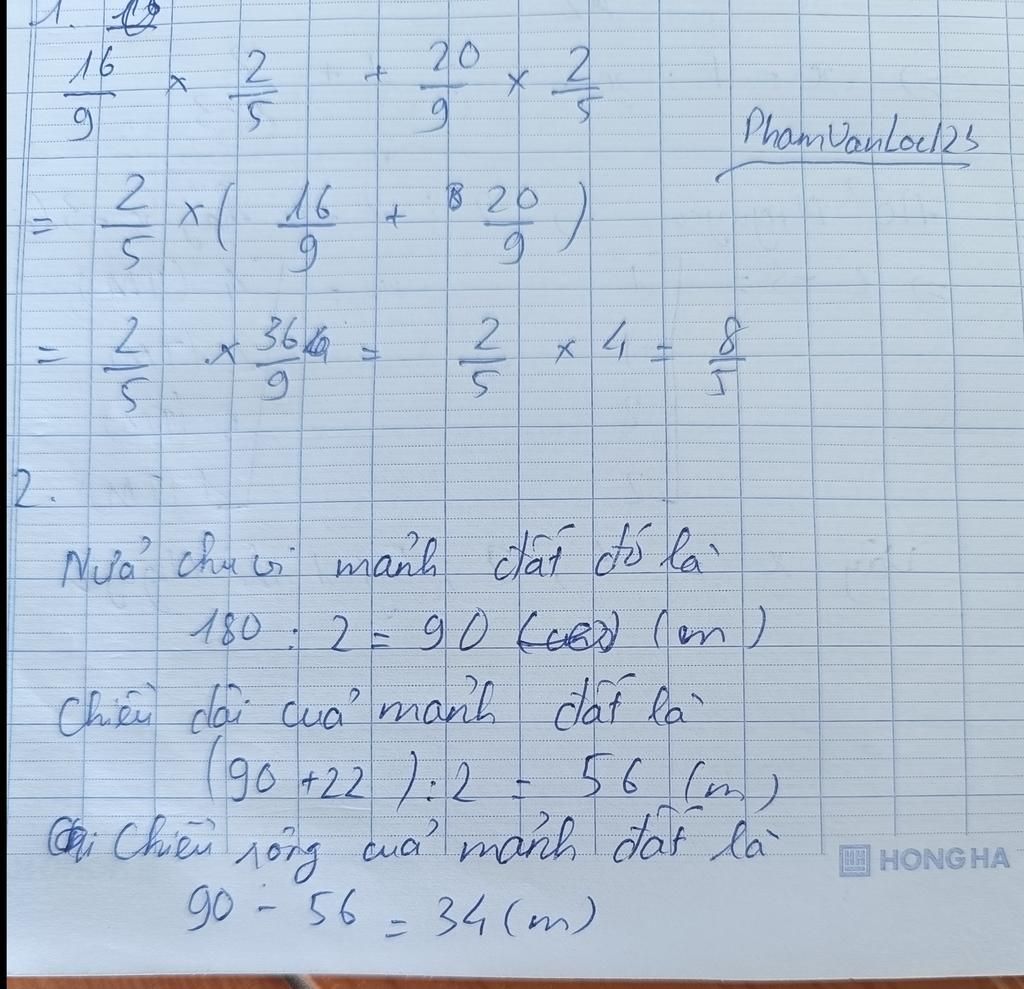 1.
16/9 × 2/5 + 20/9 × 2/5
PhamVanLoc123
= 2/5 × ( 16/9 + 20/9 )
= 2/5 × 36/9 = 2/5 × 4 = 8/5
2.
Nửa chu vi mảnh đất đó là
180 : 2 = 90 (m)
Chiều dài của mảnh đất là
(90 + 22 ) : 2 = 56 (m)
Chiều rộng của mảnh đất là
HONG HA
90 - 56 = 34 (m)